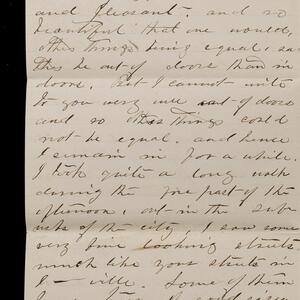 and pleasant. and so
beautiful that one would,
other things being equal, ra-
ther be out of doors than in
doors. But I cannot write
to you very well out of doors
and so other things could
not be equal. and hence
I remain in for a while.
I took quite a long walk
during the fore part of the
afternoon, out in the sub-
urbs of the city. I saw some
very fine looking streets,
much like your streets in
I—ville. Some of them